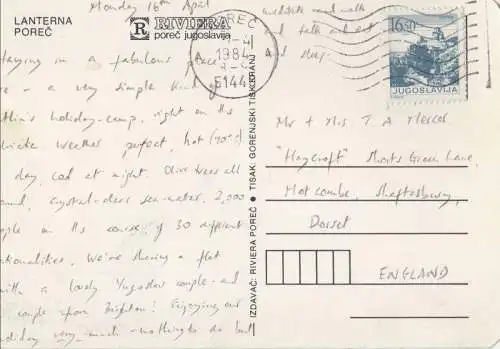 LANTERNA
POREČ
R RIVIERA
poreč jugoslavija
Monday 16th April
Staying in a fabulous place
here - a very simple kind of
Butlin's holiday-camp, right on the
. Weather perfect, hot (70°s)
day, cool at night. Olive trees all
round, crystal-clear sea-water, 2,000
people on this course of 30 different
nationalities. We're sharing a flat
with a lovely Yugoslav couple and
couple from Brighton! Enjoying our
holiday very much - nothing to do but
meditate and walk
and talk and eat
and sleep.
POREČ
1984
51440
16,50
JUGOSLAVIJA
IZDAVAČ: RIVIERA POREČ ● TISAK: GORENJSKI TISK KRANJ
Mr & Mrs T A Mercer
"Haycroft" Shorts Green Lane,
Motcombe, Shaftesbury,
Dorset
ENGLAND